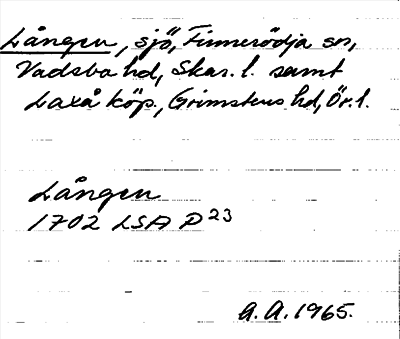 Lången, sjö, Finnerödja sn,
Vadsbo hd, Skar. l. samt
Laxå köp., Grimstens hd, Ör. l.
Lången
1702 LSA P 23
A. A. 1965.